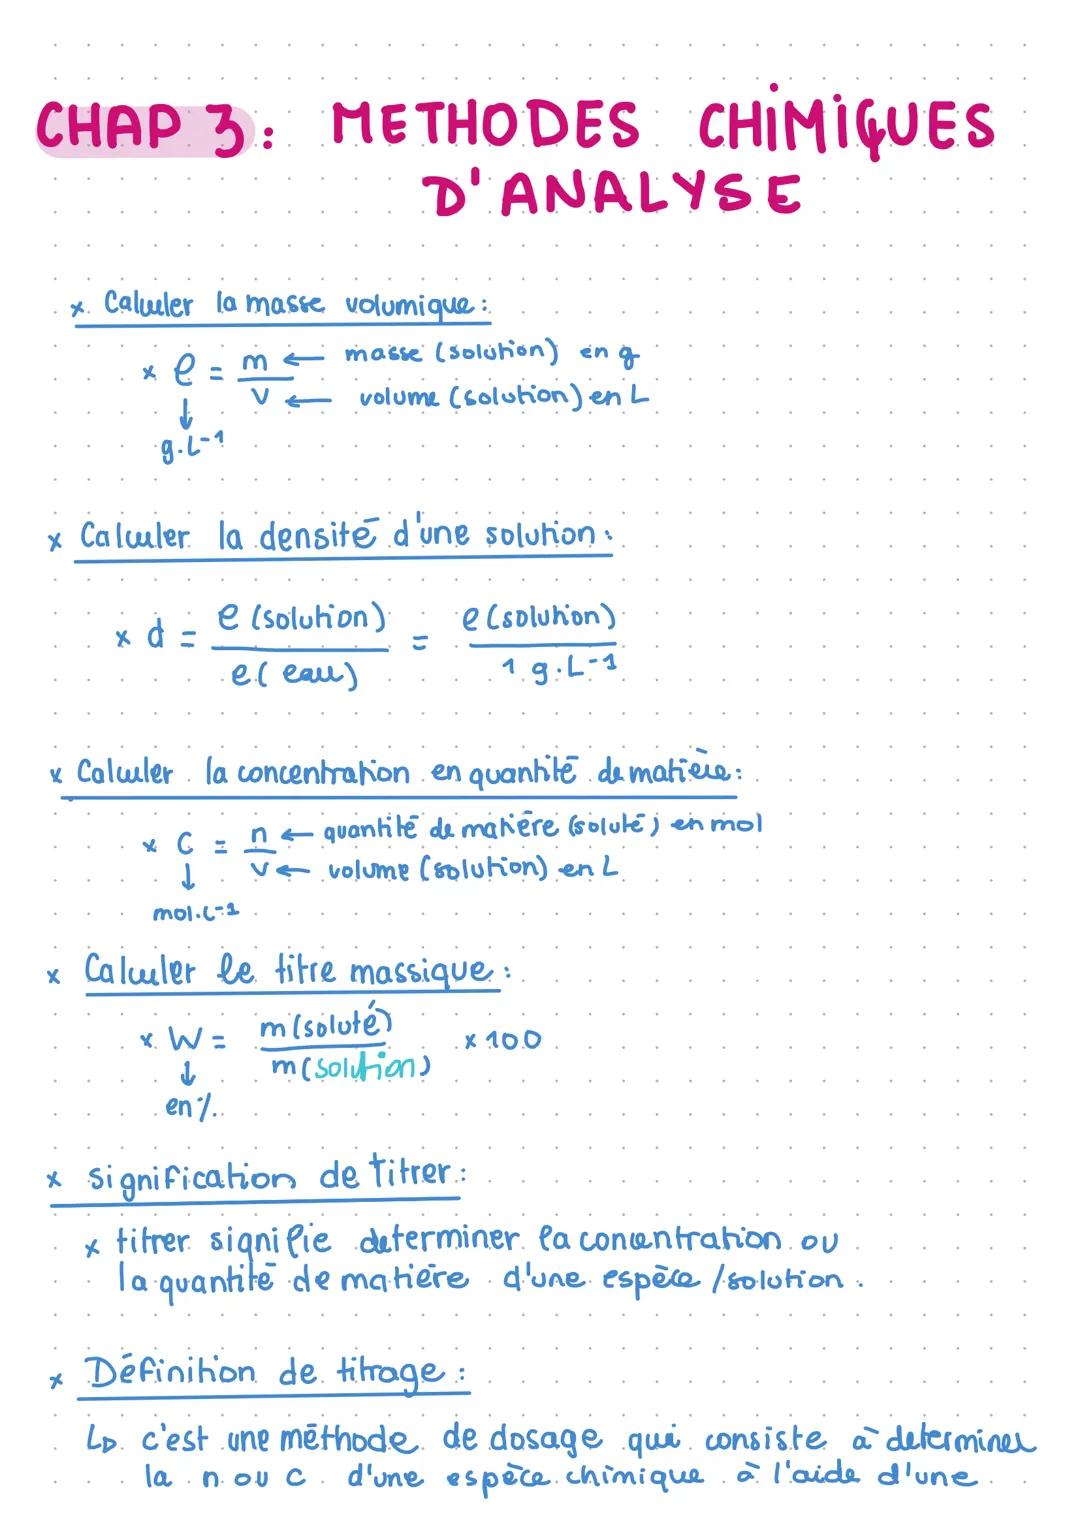 CHAP 3: METHODES CHIMIQUES
D'ANALYSE
x Calculer la masse volumique:
x ρ = m ← masse (solution) en g
V ← volume (solution) en L
↓
g.L-1
x Calculer la densité d'une solution:
x d = ρ (solution) = ρ (solution)
ρ (eau) 1 g.L-1
x Calculer la concentration en quantité de matière:
x C = n ← quantité de matière (soluté) en mol
↓ V ← volume (solution) en L
mol.L-1
x Calculer le titre massique:
x W = m (soluté) x 100
↓ m (solution)
en %.
x signification de titrer:
x titrer signifie determiner la concentration ou
la quantité de matière d'une espèce / solution.
x Définition de titrage:
↳ c'est une méthode de dosage qui consiste à determiner
la n ou C d'une espèce chimique à l'aide d'une